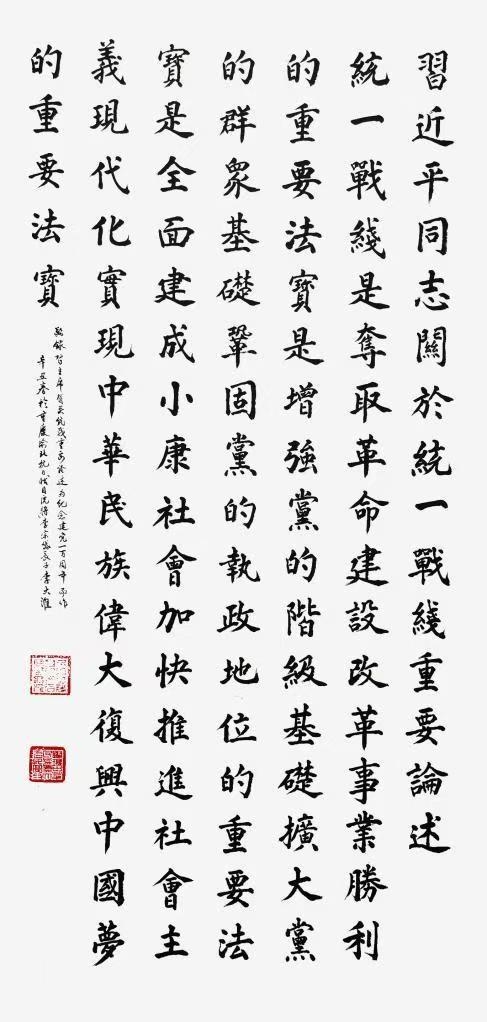 習近平同志關於統一戰綫重要論述
統一戰綫是奪取革命建設改革事業勝利
的重要法寶是增強黨的階級基礎擴大黨
的群眾基礎鞏固黨的執政地位的重要法
寶是全面建成小康社會加快推進社會主
義現代化實現中華民族偉大復興中國夢
的重要法寶
敬錄習主席有关统戰重要论述为纪念建党一百周年而作
辛丑春於重慶渝北抗日將李宗岱長子李大淮